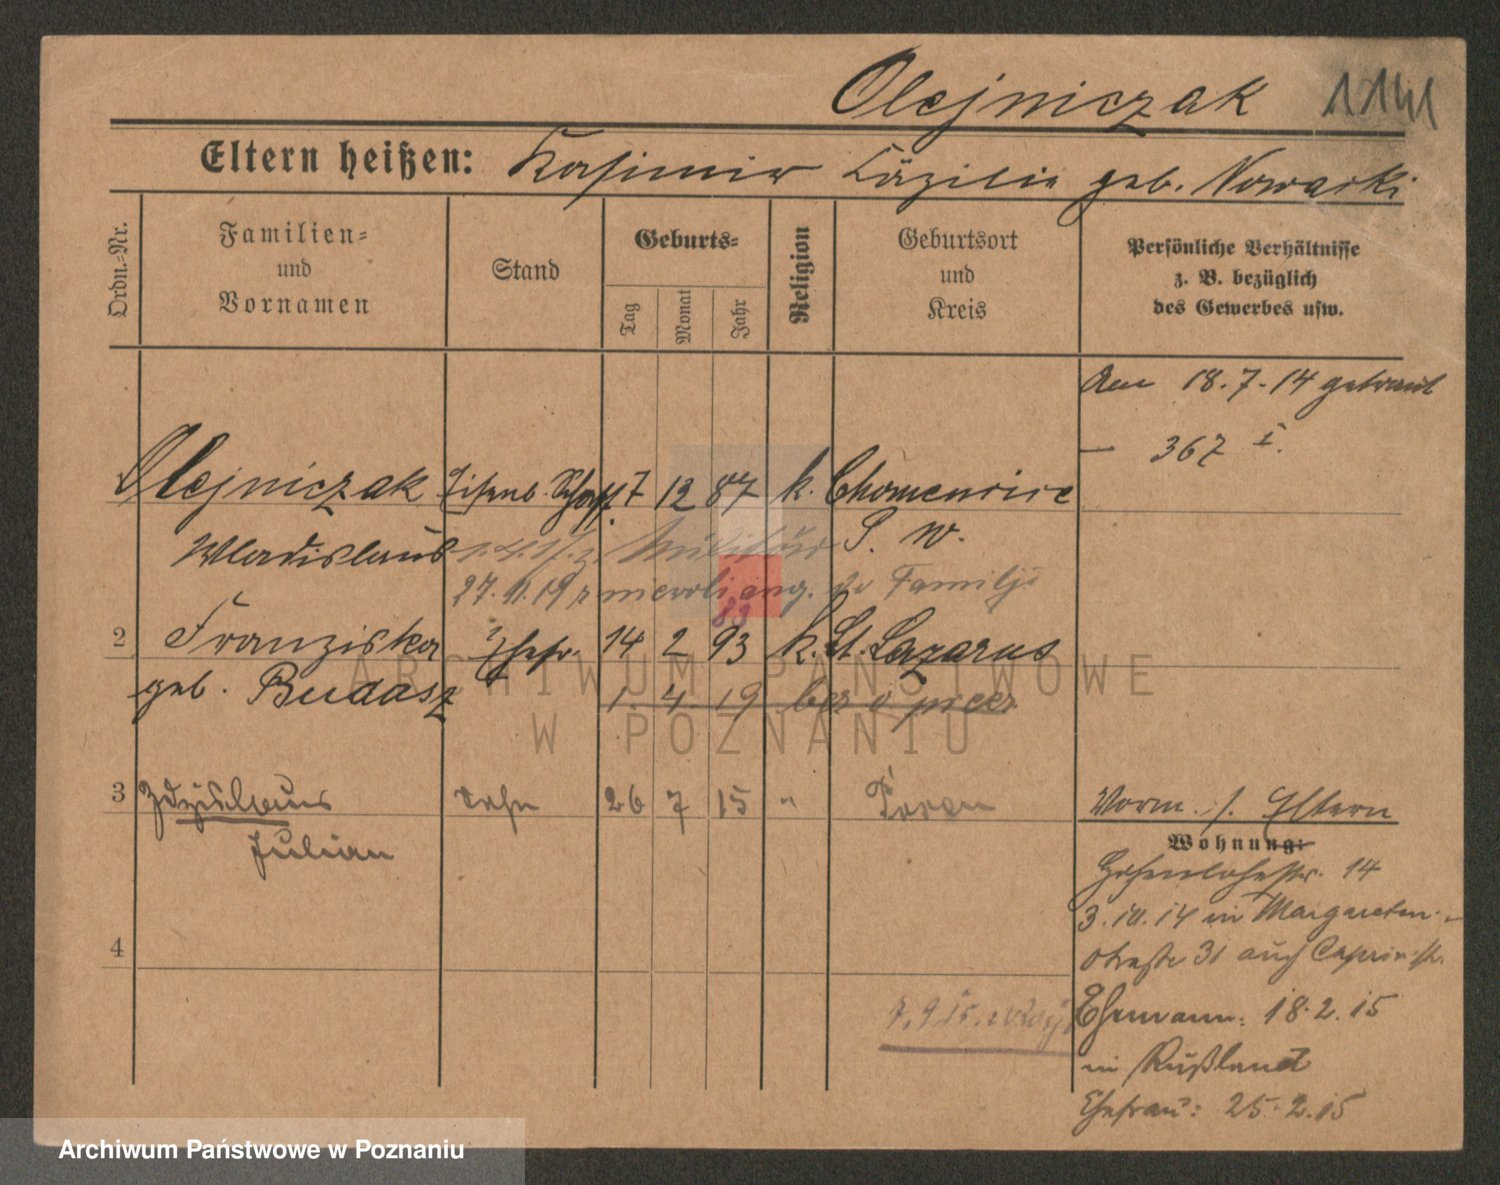 Olejniczak 1141
Eltern heißen: Kasimir Cäzilie geb. Nowacki
Ordn.-Nr.
Familien-
und
Vornamen
Stand
Geburts-
Tag
Monat
Jahr
Religion
Geburtsort
und
Kreis
Persönliche Verhältnisse
z. B. bezüglich
des Gewerbes usw.
Am 18.7.14 getraut
— 367 I.
1 Olejniczak Eisenb. 17 12 87 k.
Wladislaus S. W.
27.11.19 z niewoli ang. do Familji
83
2 Franziska Ehefr. 14 2 93 k. St. Lazarus
geb. Budasz 1. 4. 19 bez opieer
3 Zdzislaus Sohn 26 7 15 "
Julian
4
Vorm. s. Eltern
Wohnung:
Hohenlohestr. 14
3.10.14 in Margareten-
straße 31 auch Caprivistr.
Ehemann: 18.2.15
in Rußland
Ehefrau: 25.2.15
ARCHIWUM PAŃSTWOWE
W POZNANIU
Archiwum Państwowe w Poznaniu